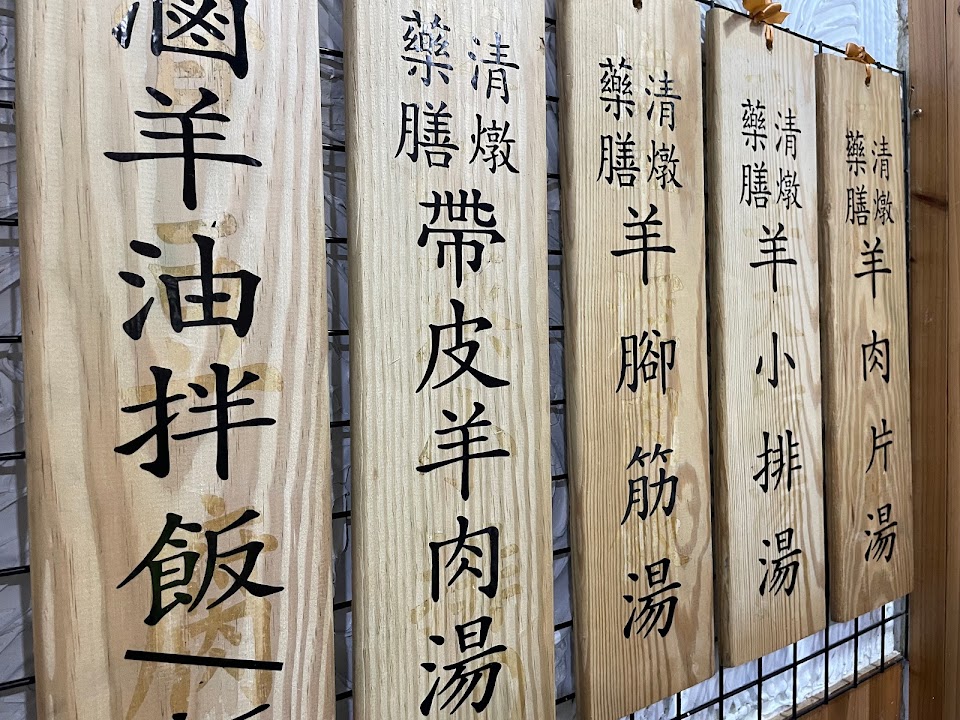 清燉
藥膳
羊肉片湯
清燉
藥膳
羊小排湯
清燉
藥膳
羊腳筋湯
清燉
藥膳
帶皮羊肉湯
滷羊油拌飯